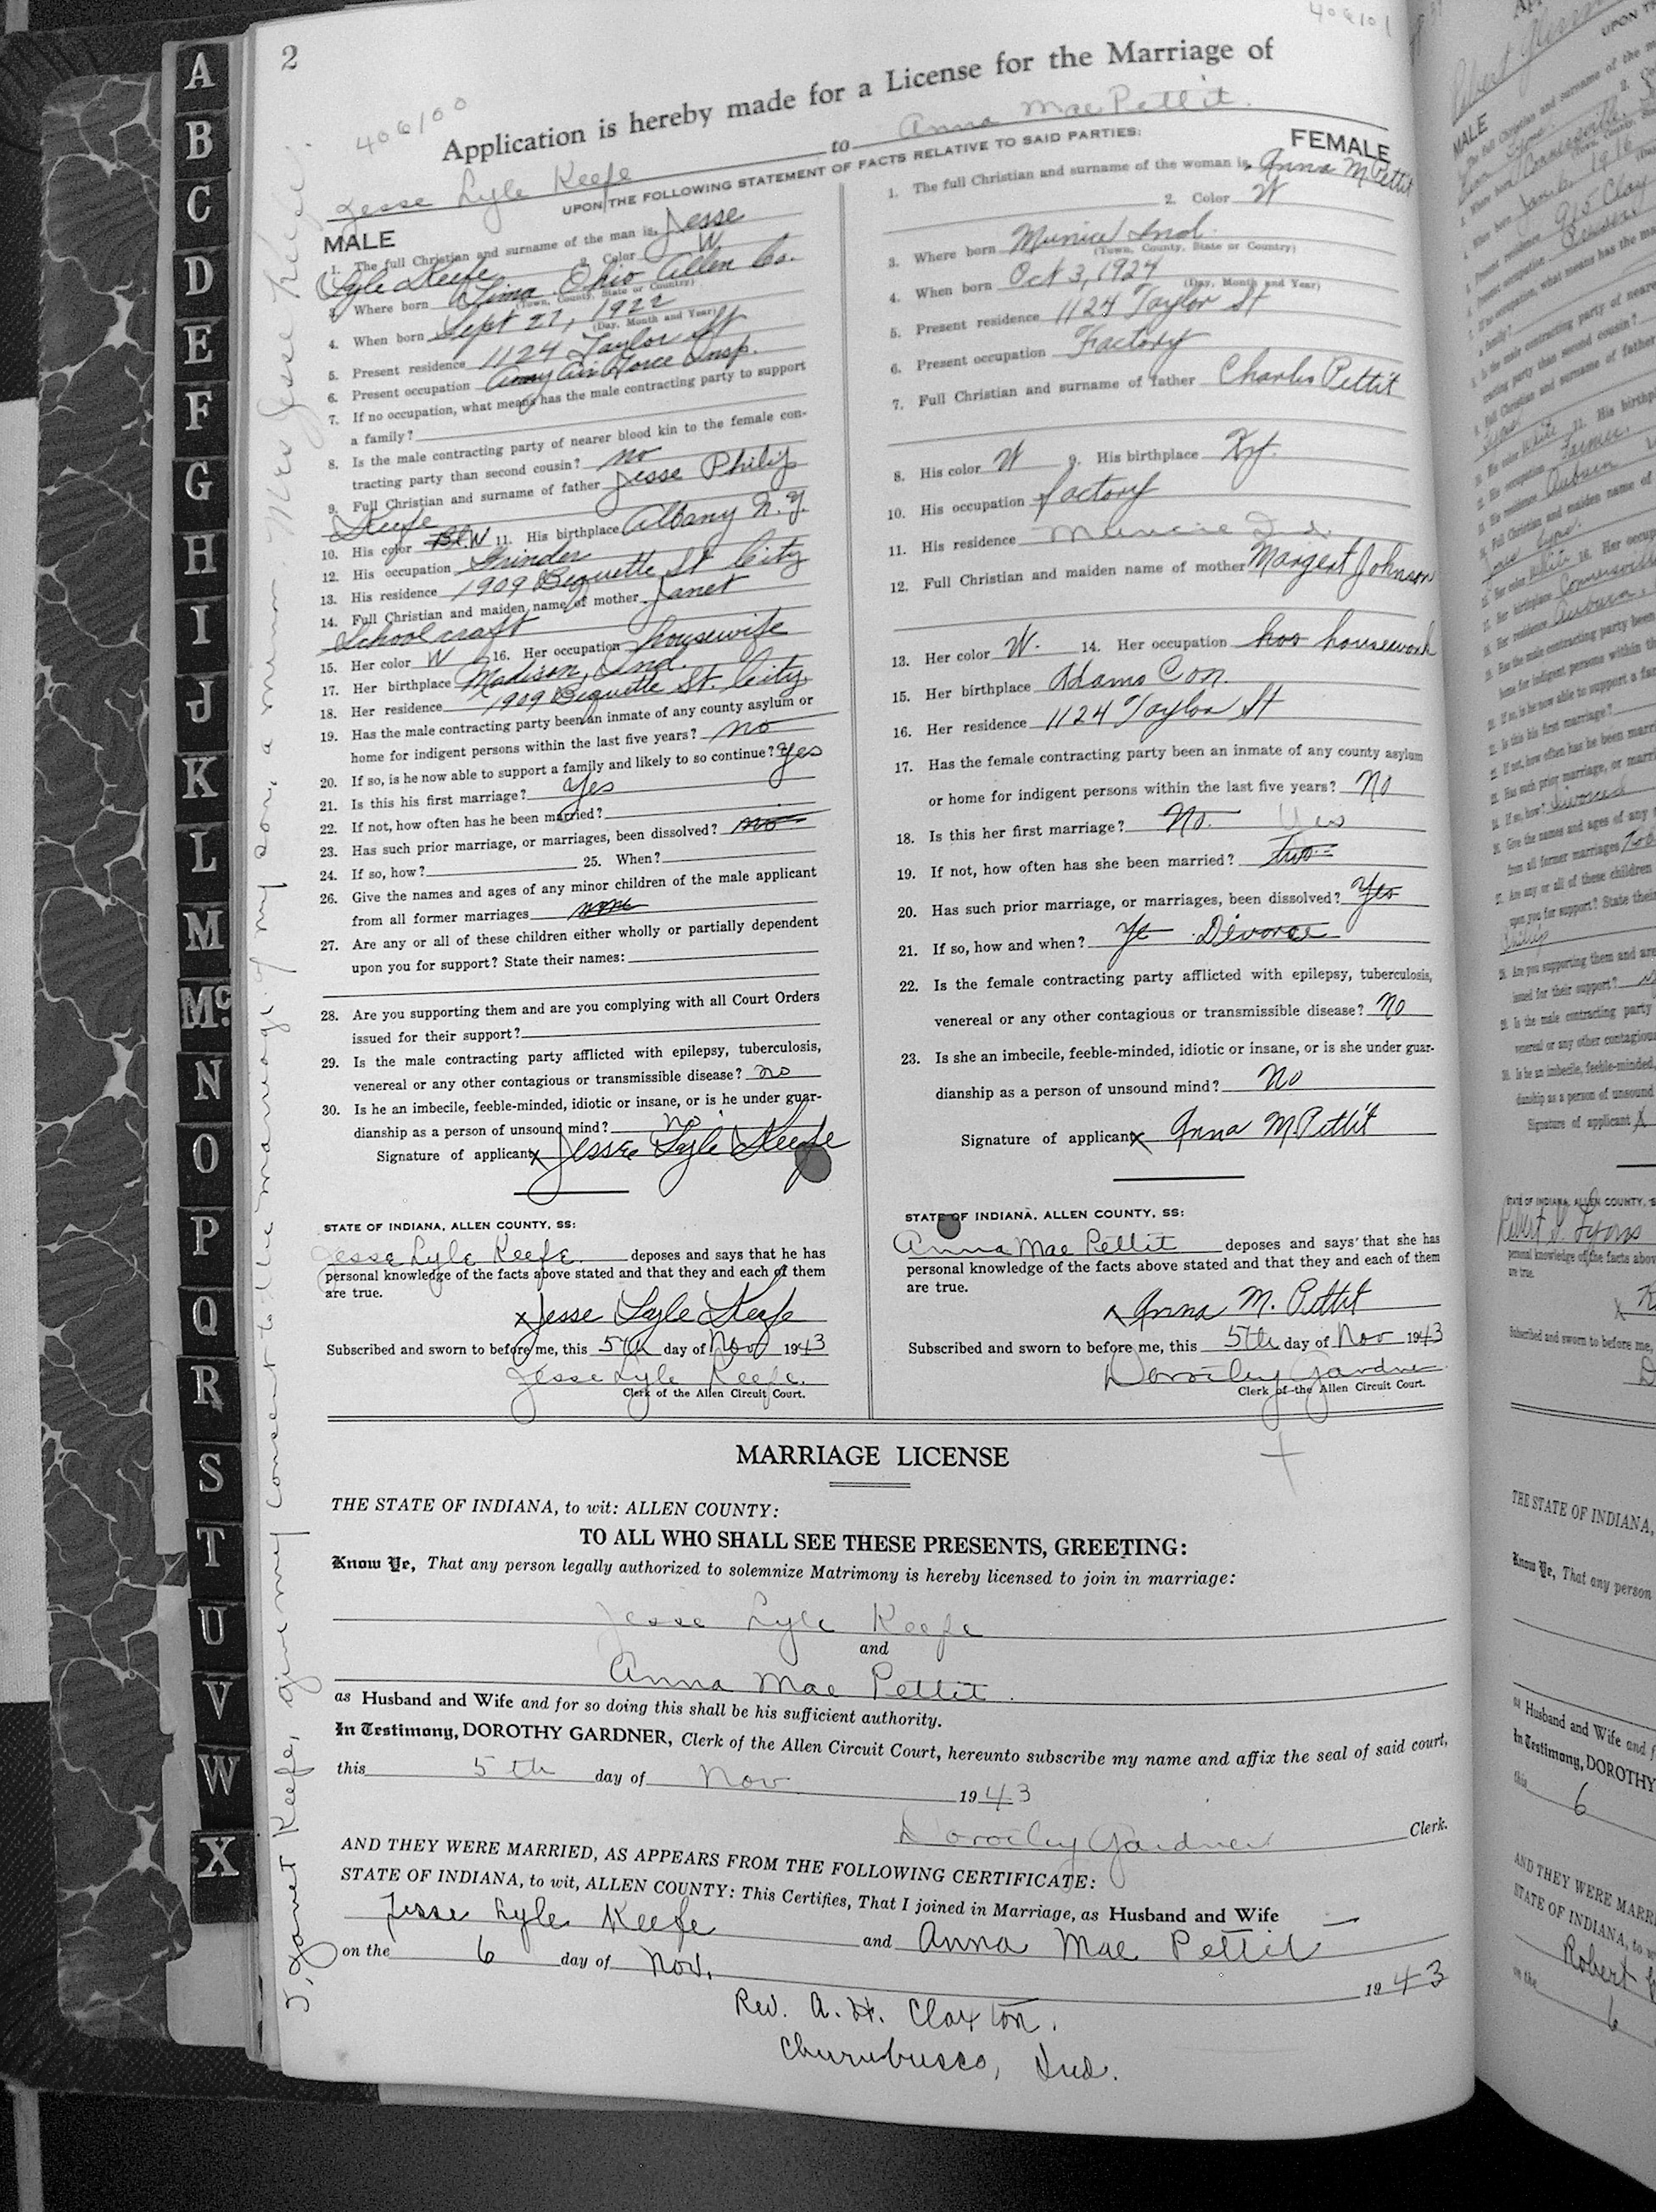 2
406100
406101
Application is hereby made for a License for the Marriage of
Jesse Lyle Keefe to Anna Mae Pettit.
UPON THE FOLLOWING STATEMENT OF FACTS RELATIVE TO SAID PARTIES:
MALE
1. The full Christian and surname of the man is, Jesse
Lyle Keefe 2. Color W
3. Where born Lima Ohio Allen Co.
(Town, County, State or Country)
4. When born Sept 27, 1922
(Day, Month and Year)
5. Present residence 1124 Taylor St
6. Present occupation Army Air Force Insp.
7. If no occupation, what means has the male contracting party to support
a family?
8. Is the male contracting party of nearer blood kin to the female con-
tracting party than second cousin? no
9. Full Christian and surname of father Jesse Philip
Keefe
10. His color W 11. His birthplace Albany N.Y.
12. His occupation Grinder
13. His residence 1909 Bequette St City
14. Full Christian and maiden name of mother Janet
Schoolcraft
15. Her color W 16. Her occupation housewife
17. Her birthplace Madison, Ind.
18. Her residence 1909 Bequette St. City
19. Has the male contracting party been an inmate of any county asylum or
home for indigent persons within the last five years? no
20. If so, is he now able to support a family and likely to so continue? Yes
21. Is this his first marriage? Yes
22. If not, how often has he been married?
23. Has such prior marriage, or marriages, been dissolved? no
24. If so, how? 25. When?
26. Give the names and ages of any minor children of the male applicant
from all former marriages none
27. Are any or all of these children either wholly or partially dependent
upon you for support? State their names:
28. Are you supporting them and are you complying with all Court Orders
issued for their support?
29. Is the male contracting party afflicted with epilepsy, tuberculosis,
venereal or any other contagious or transmissible disease? no
30. Is he an imbecile, feeble-minded, idiotic or insane, or is he under guar-
dianship as a person of unsound mind? no
Signature of applicant x Jesse Lyle Keefe
STATE OF INDIANA, ALLEN COUNTY, SS:
Jesse Lyle Keefe. deposes and says that he has
personal knowledge of the facts above stated and that they and each of them
are true.
x Jesse Lyle Keefe
Subscribed and sworn to before me, this 5th day of Nov 1943
Jesse Lyle Keefe.
Clerk of the Allen Circuit Court.
FEMALE
1. The full Christian and surname of the woman is, Anna M Pettit
2. Color W
3. Where born Munice Ind.
(Town, County, State or Country)
4. When born Oct 3, 1924
(Day, Month and Year)
5. Present residence 1124 Taylor St
6. Present occupation Factory
7. Full Christian and surname of father Charles Pettit
8. His color W 9. His birthplace Ky.
10. His occupation factory
11. His residence Muncie Ind.
12. Full Christian and maiden name of mother Margert Johnson
13. Her color W. 14. Her occupation housework
15. Her birthplace Adams Con.
16. Her residence 1124 Taylor St
17. Has the female contracting party been an inmate of any county asylum
or home for indigent persons within the last five years? No
18. Is this her first marriage? No. Yes
19. If not, how often has she been married? two
20. Has such prior marriage, or marriages, been dissolved? Yes
21. If so, how and when? Ye Divorce
22. Is the female contracting party afflicted with epilepsy, tuberculosis,
venereal or any other contagious or transmissible disease? No
23. Is she an imbecile, feeble-minded, idiotic or insane, or is she under guar-
dianship as a person of unsound mind? No
Signature of applicant x Anna M Pettit
STATE OF INDIANA, ALLEN COUNTY, SS:
Anna Mae Pettit deposes and says that she has
personal knowledge of the facts above stated and that they and each of them
are true.
x Anna M. Pettit
Subscribed and sworn to before me, this 5th day of Nov 1943
Dorothy Gardner
Clerk of the Allen Circuit Court.
MARRIAGE LICENSE
THE STATE OF INDIANA, to wit: ALLEN COUNTY:
TO ALL WHO SHALL SEE THESE PRESENTS, GREETING:
Know Ye, That any person legally authorized to solemnize Matrimony is hereby licensed to join in marriage:
Jesse Lyle Keefe
and
Anna Mae Pettit.
as Husband and Wife and for so doing this shall be his sufficient authority.
In Testimony, DOROTHY GARDNER, Clerk of the Allen Circuit Court, hereunto subscribe my name and affix the seal of said court,
this 5th day of Nov 1943
Dorothy Gardner Clerk.
AND THEY WERE MARRIED, AS APPEARS FROM THE FOLLOWING CERTIFICATE:
STATE OF INDIANA, to wit, ALLEN COUNTY: This Certifies, That I joined in Marriage, as Husband and Wife
Jesse Lyle Keefe and Anna Mae Pettit
on the 6 day of Nov. 1943
Rev. A. H. Claxton.
Churubusco, Ind.
I, Janet Keefe, give my consent to the marriage of my son, a minor. Mrs Jesse Keefe.
A
B
C
D
E
F
G
H
I
J
K
L
M
Mc.
N
O
P
Q
R
S
T
U
V
W
X
MALE
STATE OF INDIANA, ALLEN COUNTY,
Robert S. Lyons
personal knowledge of the facts
are true.
Subscribed and sworn to before me,
THE STATE OF INDIANA,
Know Ye, That any person
as Husband and Wife and
In Testimony, DOROTHY
this 6
AND THEY WERE
STATE OF INDIANA, to
Robert
on the 6